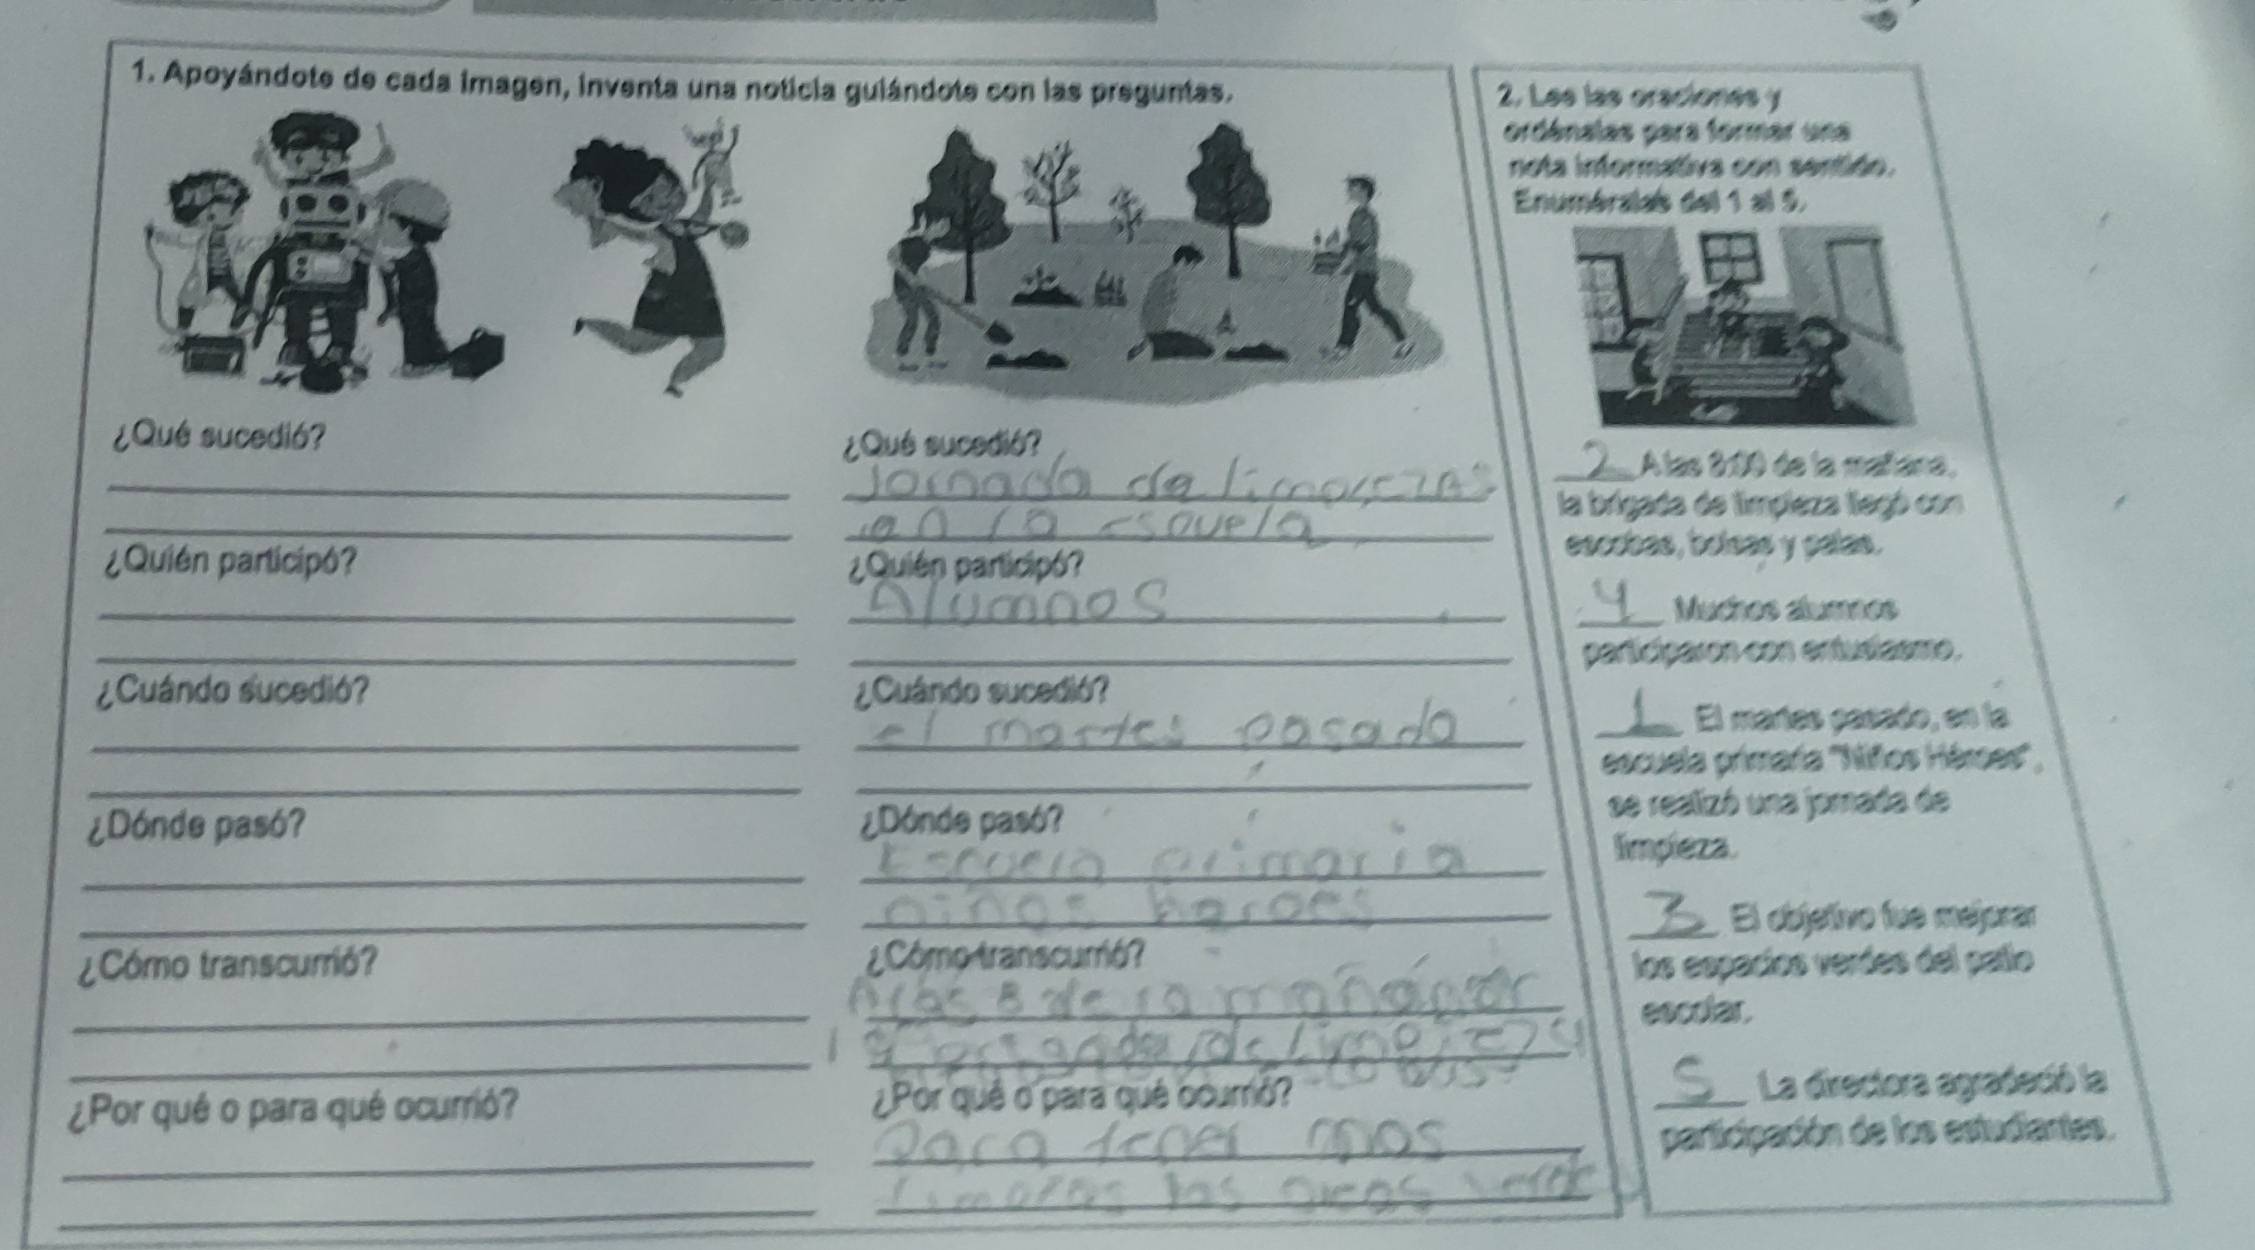 1. Apoyándote de cada imagen, inventa una noticia guiándote con las preguntas.
¿Qué sucedió?
¿Quién participó?
¿Cuándo sucedió?
¿Dónde pasó?
¿Cómo transcurrió?
¿Por qué o para qué ocurrió?
¿Qué sucedió?
Jornada de
en la esquela
¿Quién participó?
Alumnos
¿Cuándo sucedió?
el martes pasado
¿Dónde pasó?
Escuela primaria
niños heroes
¿Cómo transcurrió?
A las 8 de la
¿Por qué o para qué ocurrió?
para tener mas
las
2. Lee las oraciones y
ordénalas para formar una
nota informativa con sentido.
Enuméralas del 1 al 5.
2 A las 8:00 de la mañana,
la brigada de limpieza llegó con
escobas, bolsas y palas.
4 Muchos alumnos
participaron con entusiasmo.
1 El martes pasado, en la
escuela primaria "Niños Héroes",
se realizó una jornada de
limpieza.
3 El objetivo fue mejorar
los espacios verdes del patio
escolar.
5 La directora agradeció la
participación de los estudiantes.